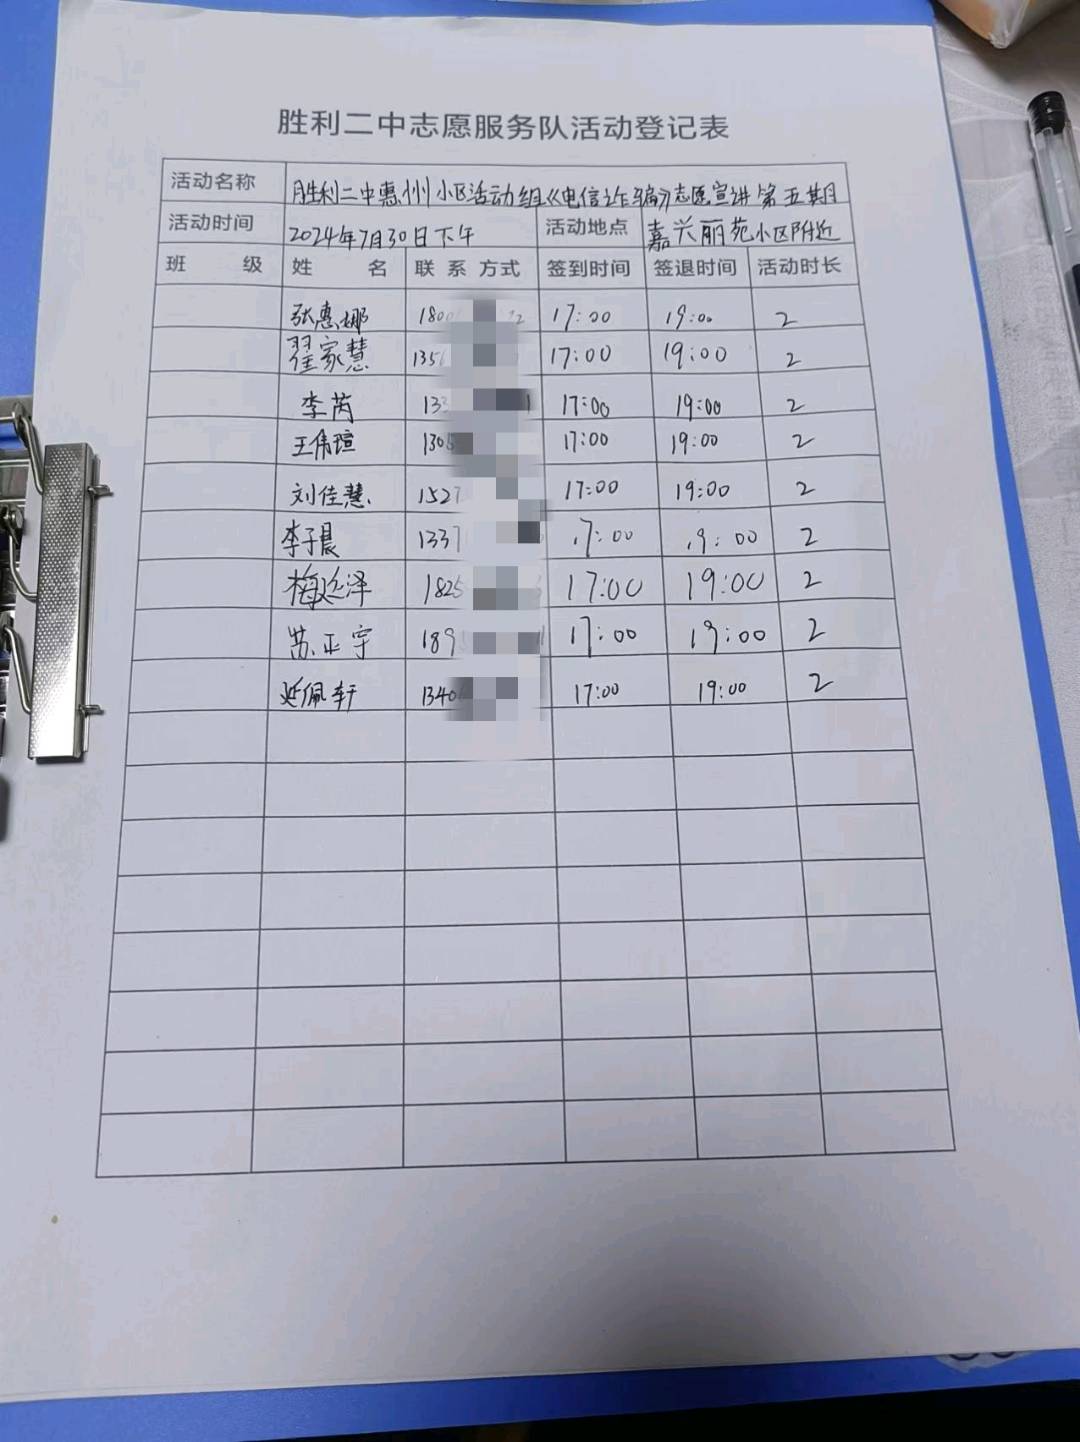 胜利二中志愿服务队活动登记表
活动名称 胜利二中惠州小区活动组《电信诈骗》志愿宣讲第五期
活动时间 2024年7月30日下午 活动地点 嘉兴丽苑小区附近
班 级 姓 名 联系方式 签到时间 签退时间 活动时长
张惠娜 180 17:00 19:00 2
翟家慧 135 17:00 19:00 2
李芮 133 17:00 19:00 2
王伟瑄 130 17:00 19:00 2
刘佳慧 1527 17:00 19:00 2
李子晨 1337 17:00 19:00 2
梅延泽 1825 17:00 19:00 2
苏正宇 189 17:00 19:00 2
延佩轩 1340 17:00 19:00 2